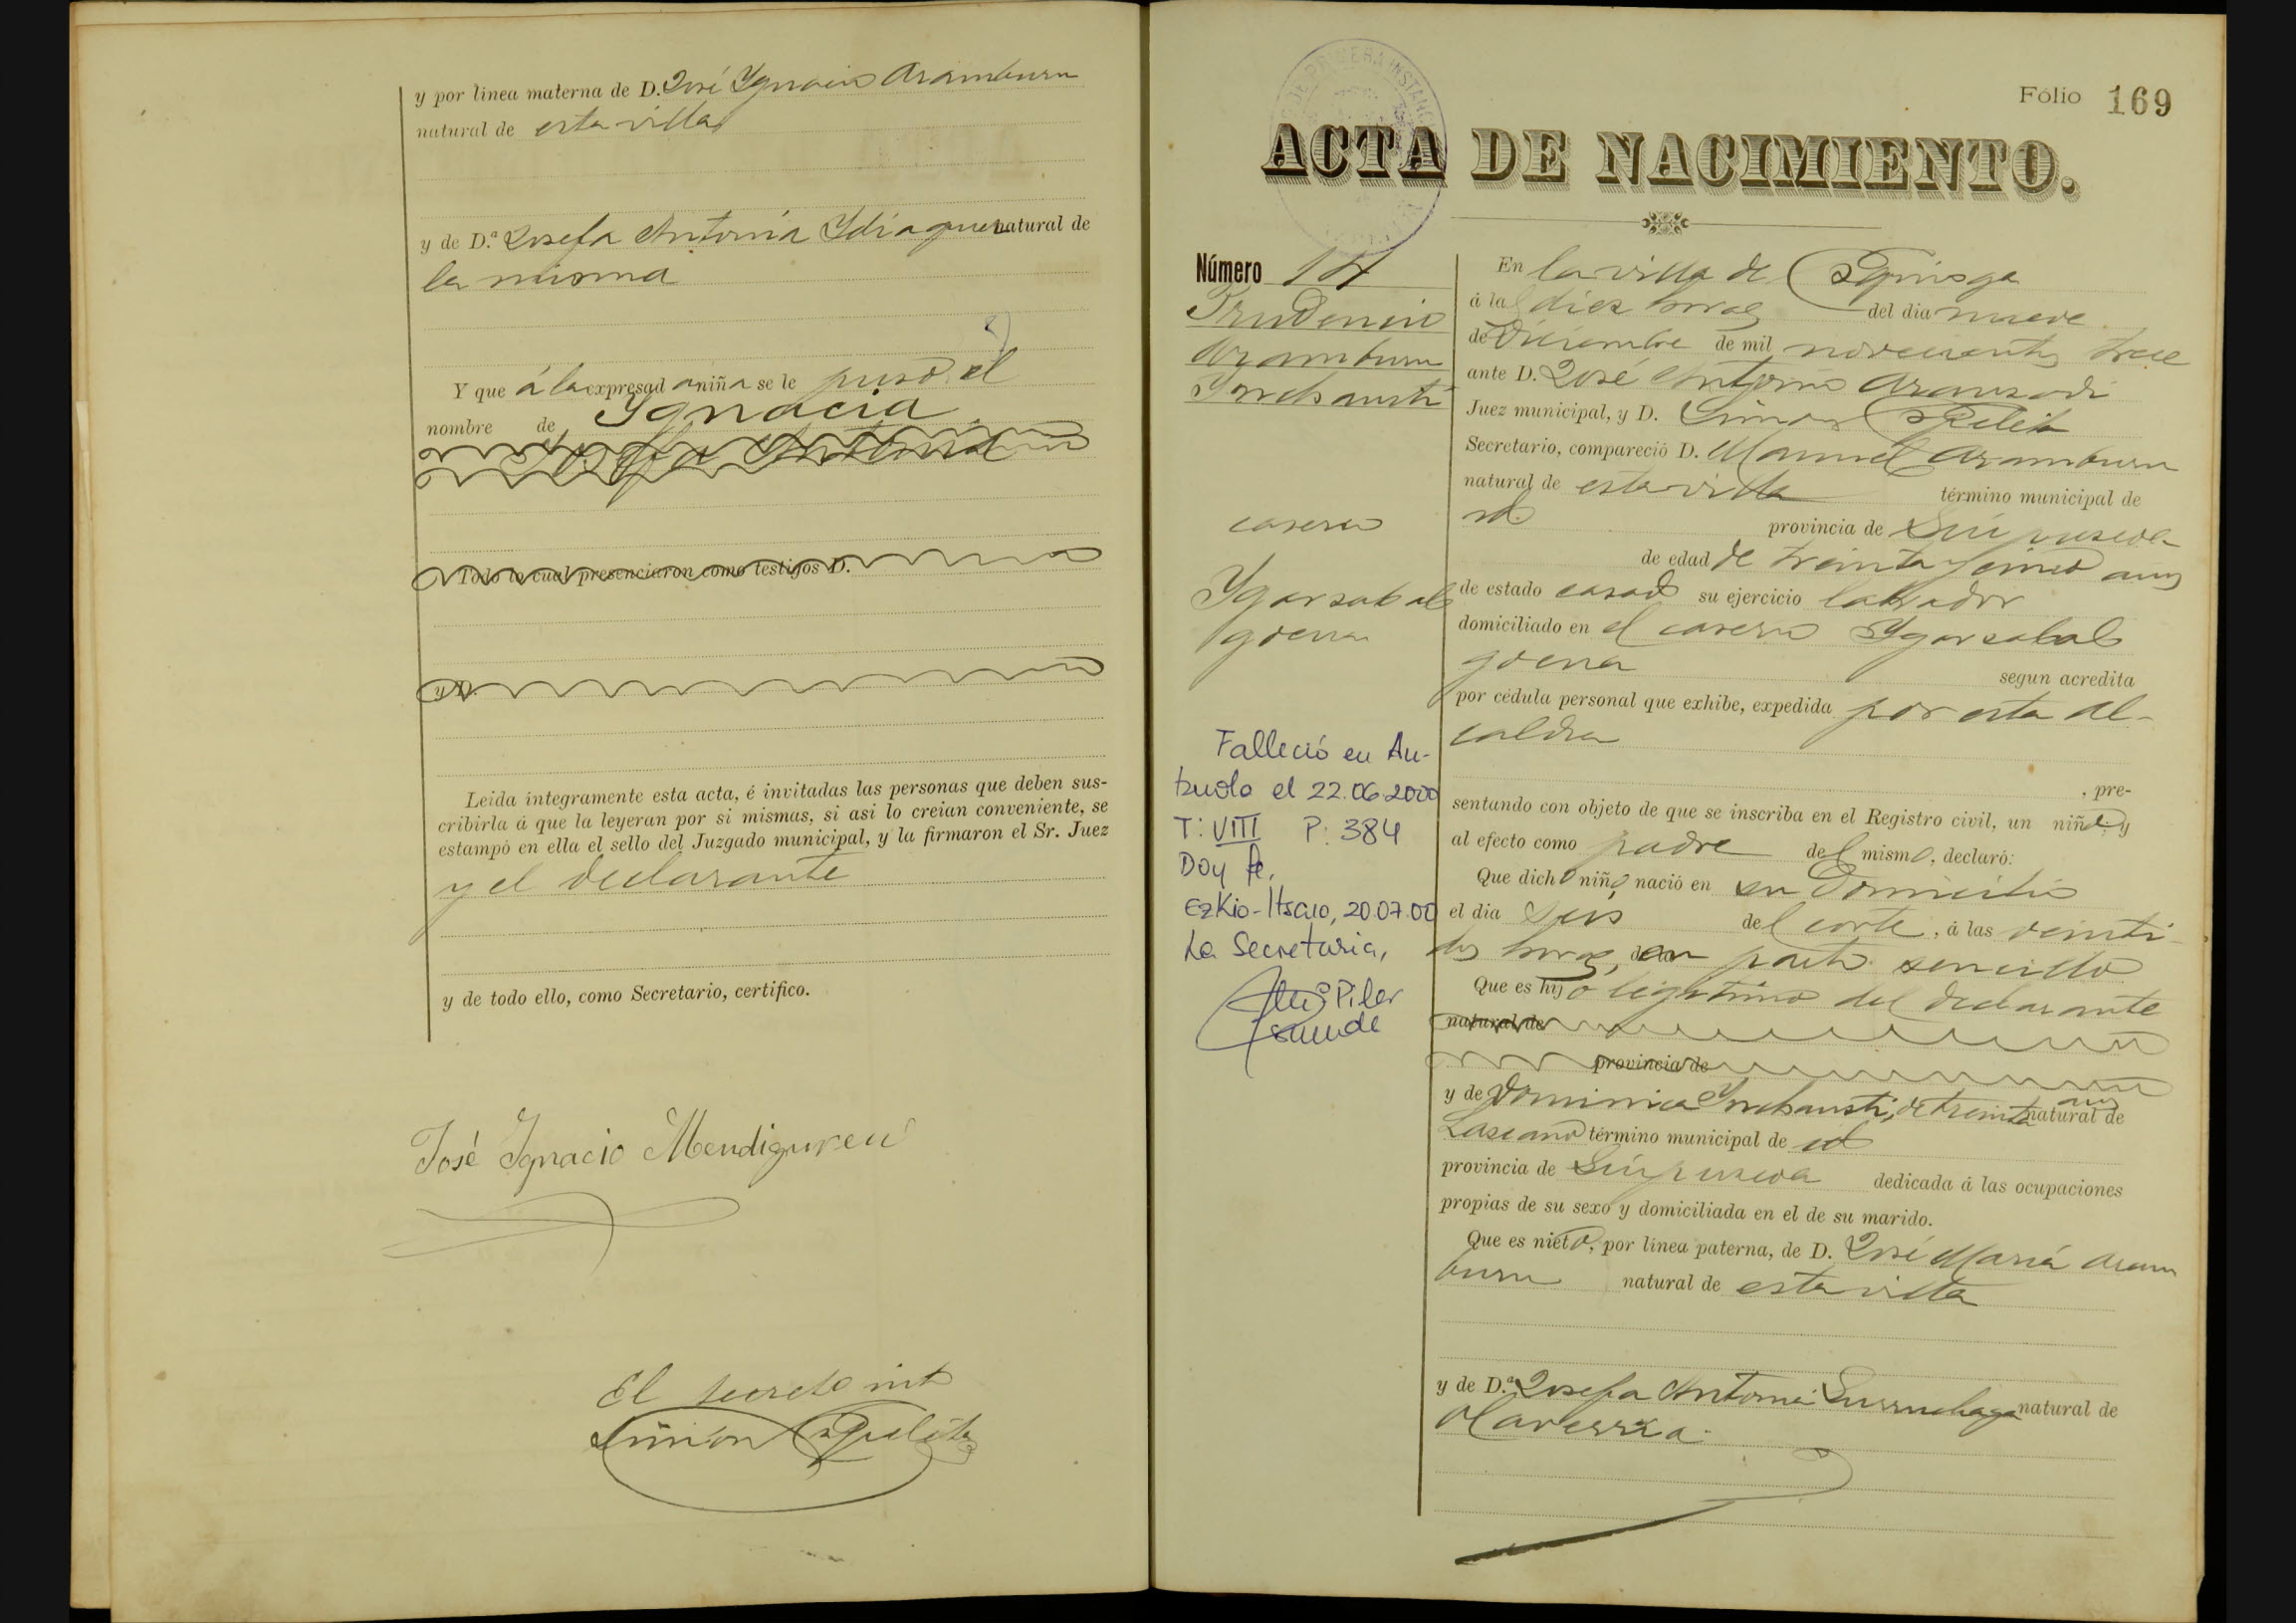 y por línea materna de D. José Ygnacio Aramburu
natural de esta villa
y de D.ª Josefa Antonia Ydiaquez natural de
la misma
Y que á la expresada niña se le puso el
nombre de Ygnacia
Josefa Antonia
Todo lo cual presenciaron como testigos D.
y D.
Leida íntegramente esta acta, é invitadas las personas que deben sus-
cribirla á que la leyeran por si mismas, si asi lo creian conveniente, se
estampó en ella el sello del Juzgado municipal, y la firmaron el Sr. Juez
y el declarante
y de todo ello, como Secretario, certifico.
José Ygnacio Mendiguren
El secreto int
Simon
Fólio 169
ACTA DE NACIMIENTO.
Número 14
Prudencio
Aramburu
Ynchausti
caserio
Ygarzabal
goena
Falleció en An-
tzuola el 22.06.2000
T: VIII P: 384
Doy fe.
Ezkio-Itsaso, 20.07.00
La Secretaria,
Mª Pilar
En la villa de Ezquioga
á la diez horas del dia nueve
de Diciembre de mil novecientos trece
ante D. José Antonio Aranzadi
Juez municipal, y D. Simon
Secretario, compareció D. Manuel Aramburu
natural de esta villa término municipal de
id. provincia de Guipuzcoa
de edad de treinta y cinco años
de estado casado su ejercicio labrador
domiciliado en el caserio Ygarzabal
goena segun acredita
por cédula personal que exhibe, expedida por esta al-
caldia
, pre-
sentando con objeto de que se inscriba en el Registro civil, un niño y
al efecto como padre del mismo, declaró:
Que dicho niño nació en su domicilio
el dia seis del corte, á las veinti
dos horas, en parto sencillo
Que es hijo legitimo del declarante
natural de
provincia de
y de Dominica Ynchausti, de treinta años natural de
Lazcano término municipal de id
provincia de Guipuzcoa dedicada á las ocupaciones
propias de su sexo y domiciliada en el de su marido.
Que es nieto, por línea paterna, de D. José María Aram
buru natural de esta villa
y de D.ª Josefa Antonia Gurruchaga natural de
Olaverria.